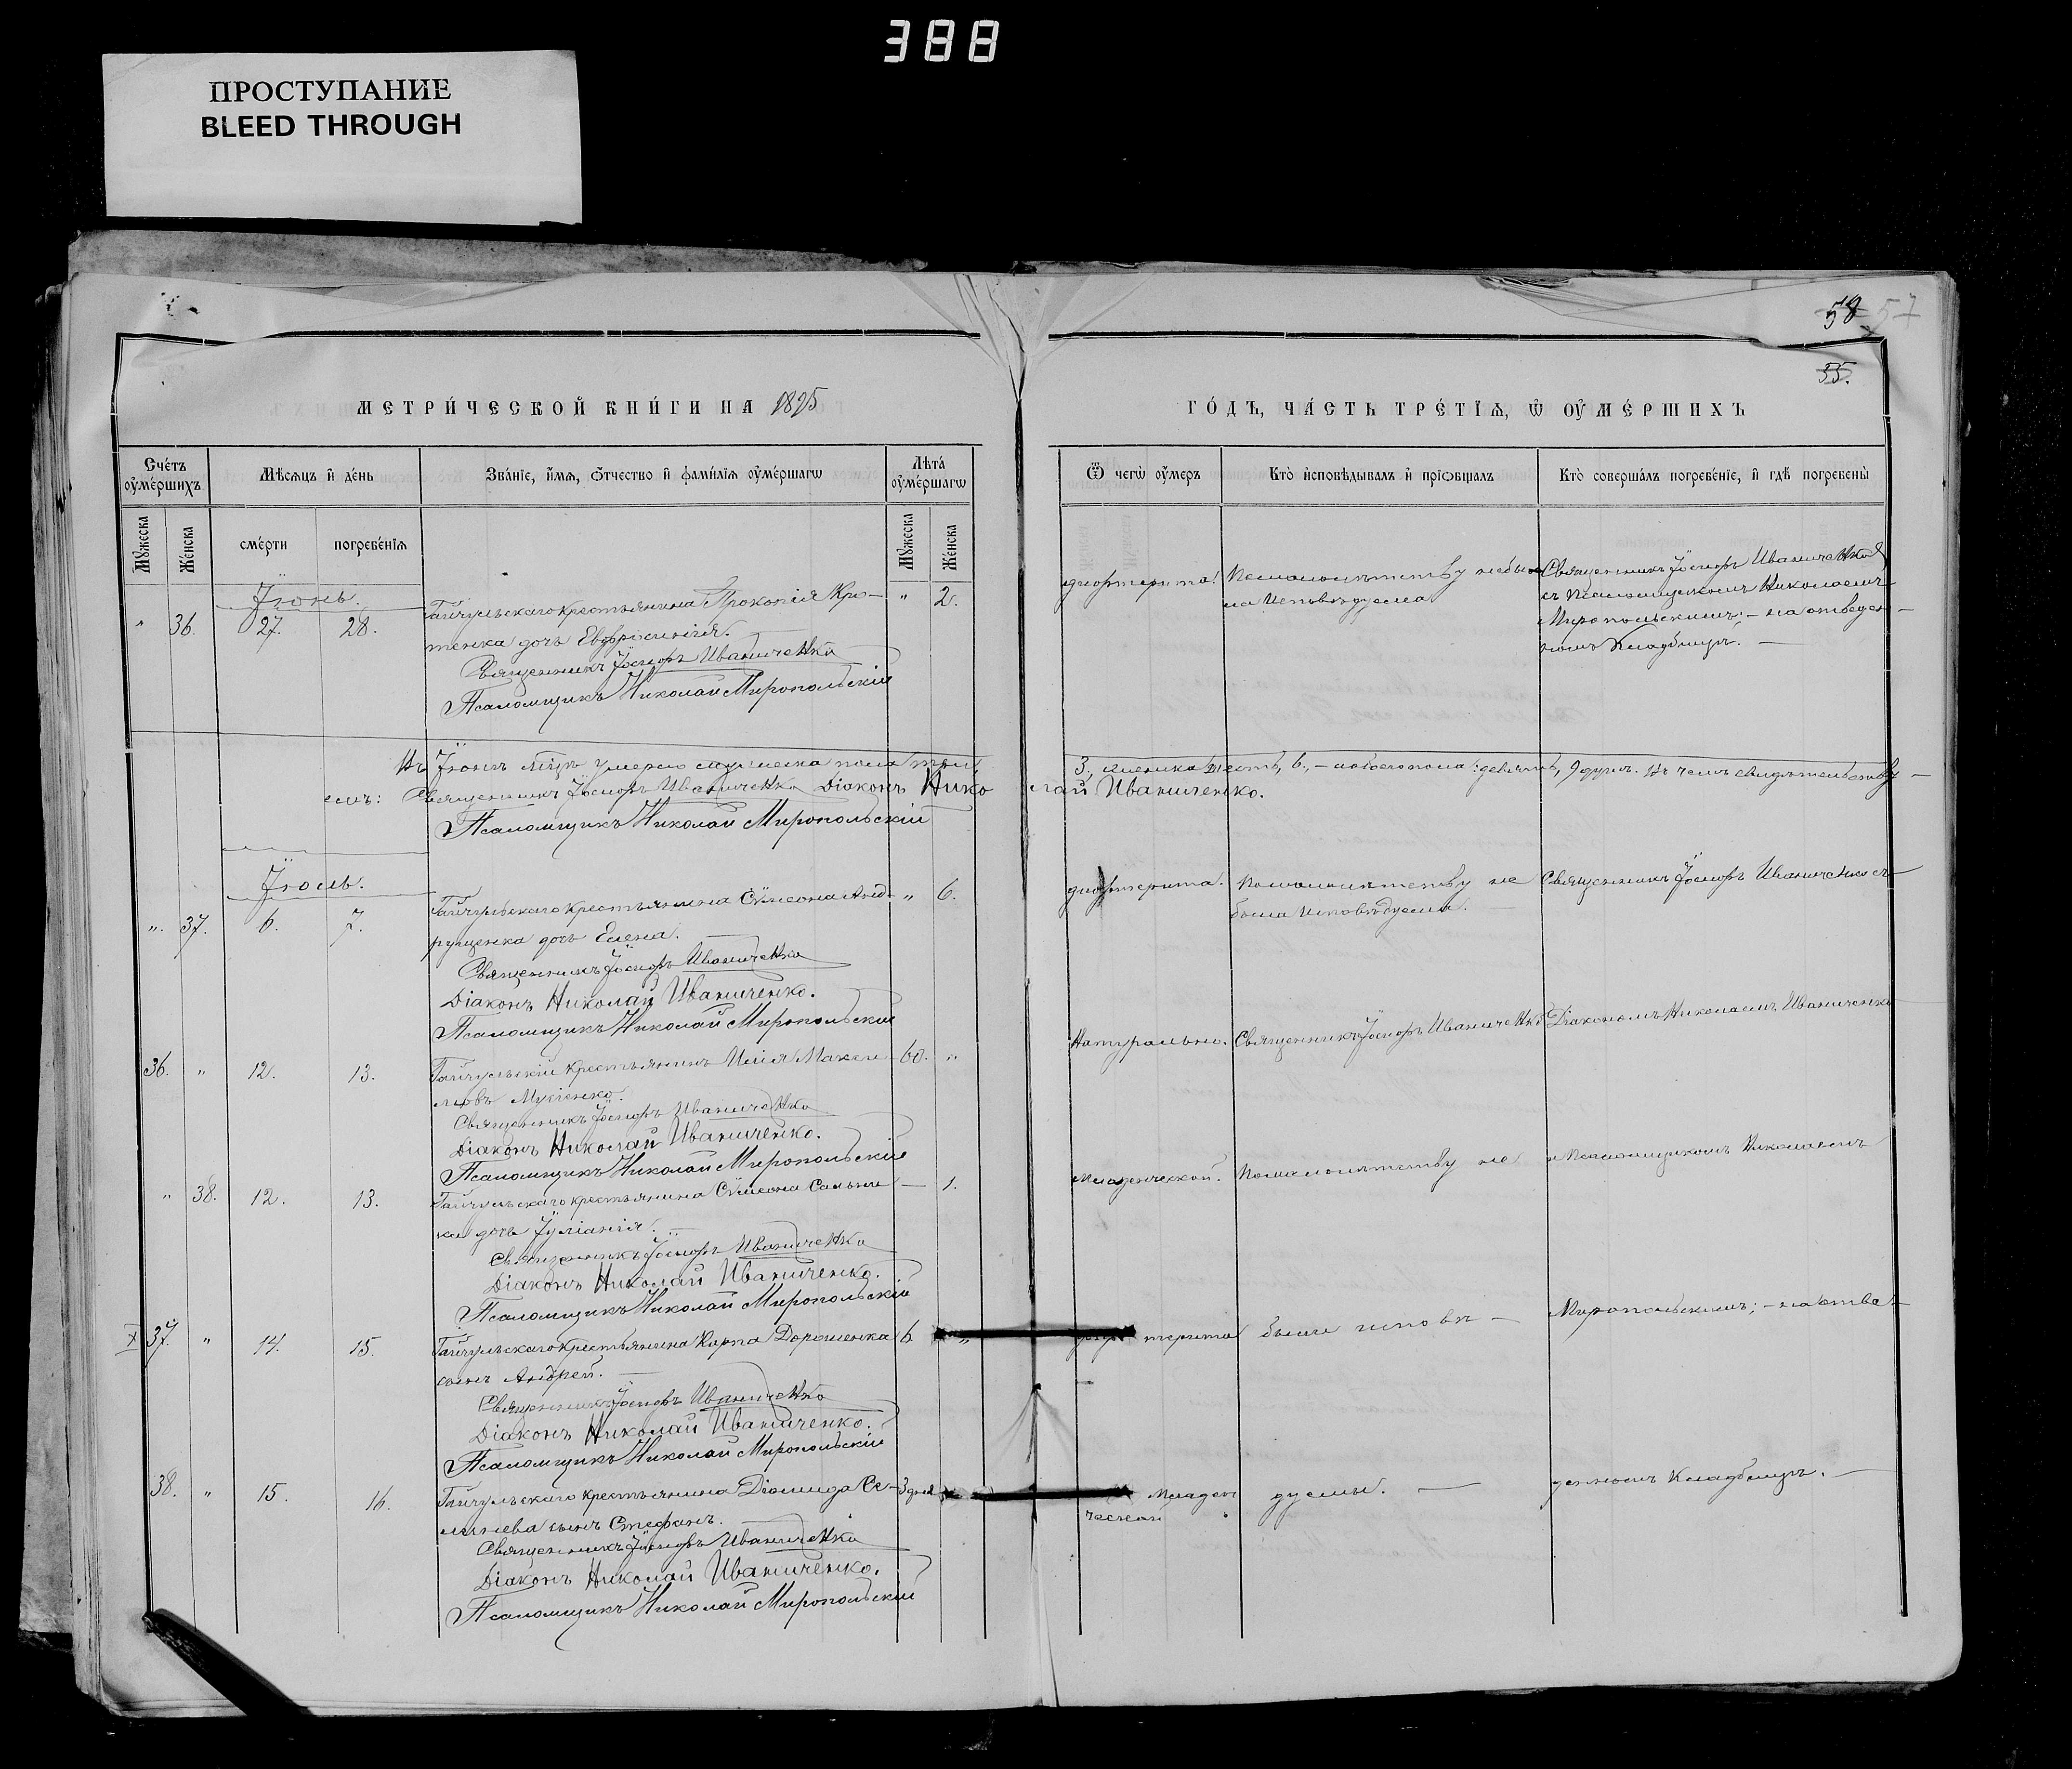 388
ПРОСТУПАНИЕ
BLEED THROUGH
58 57
55.
МЕТРИ́ЧЕСКОЙ КНИ́ГИ НА 1895
ГО́ДЪ, ЧА́СТЬ ТРЕ́ТІѦ, Ѡ ОУ҆МЕ́РШИХЪ
Сче́тъ оу҆ме́ршихъ
Мѣ́сѧцъ и҆ де́нь
Зва́нїе, и҆́мѧ, ѻ҆́тчество и҆ фами́лїѧ оу҆ме́ршагѡ
Лѣта̀ оу҆ме́ршагѡ
Ѿ чегѡ̀ оу҆́меръ
Кто̀ и҆сповѣ́дывалъ и҆ прїѡбща́лъ
Кто̀ соверша́лъ погребе́нїе, и҆ гдѣ̀ погребены̀
Мꙋ́жеска
Же́нска
сме́рти
погребе́нїѧ
Мꙋ́жеска
Же́нска
Іюнь.
" 36. 27. 28. Гайчульскаго крестьянина Прокопія Кро- " 2.
тенка дочь Евфросинія.
Священникъ Іосифъ Иваниченко
Псаломщикъ Николай Миропольскій
дифтерита. По малолѣтству не бы-
ла исповѣдуема
Священникъ Іосифъ Иваниченко
съ Псаломщикомъ Николаемъ
Миропольскимъ; – на отведен-
номъ Кладбищѣ. —
Въ Іюнѣ мцѣ умерло мужеска пола три, 3., женска шесть, 6., – а обоего пола: девять, 9 душъ. Въ чемъ свидѣтельству-
емъ: Священникъ Іосифъ Иваниченко Діаконъ Николай Иваниченко.
Псаломщикъ Николай Миропольскій
Іюль.
". 37. 6. 7. Гайчульскаго крестьянина Сѵмеона Анд- " 6.
рущенка дочь Елена.
Священникъ Іосифъ Иваниченко
Діаконъ Николай Иваниченко.
Псаломщикъ Николай Миропольскій
дифтерита. По малолѣтству не
была исповѣдуема. —
Священникъ Іосифъ Иваниченко съ
36. " 12. 13. Гайчульскій крестьянинъ Илія Макси- 60. "
мовъ Мусіенко.
Священникъ Іосифъ Иваниченко
Діаконъ Николай Иваниченко.
Псаломщикъ Николай Миропольскій
Натурально. Священникъ Іосифъ Иваниченко Діакономъ Николаемъ Иваниченко
" 38. 12. 13. Гайчульскаго крестьянина Сѵмеона — 1.
дочь Іуліанія. —
Священникъ Іосифъ Иваниченко
Діаконъ Николай Иваниченко.
Псаломщикъ Николай Миропольскій
Младенческой. По малолѣтству не и Псаломщикомъ Николаемъ
37. " 14. 15. Гайчульскаго крестьянина Карпа Дорошенка 6. "
сынъ Андрей. —
Священникъ Іосифъ Иваниченко
Діаконъ Николай Иваниченко.
Псаломщикъ Николай Миропольскій
дифтерита были исповѣ- Миропольскимъ; – на отве-
38. " 15. 16. Гайчульскаго крестьянина Діомида Се- 3 дня
сынъ Стефанъ.
Священникъ Іосифъ Иваниченко
Діаконъ Николай Иваниченко.
Псаломщикъ Николай Миропольскій
Младен
ческой
дуемы. — денномъ Кладбищѣ. —